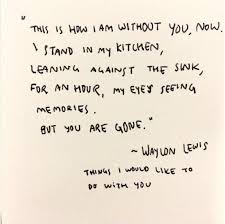 "
THIS IS HOW I AM WITHOUT YOU, NOW.
I STAND IN MY KITCHEN,
LEANING AGAINST THE SINK,
FOR AN HOUR, MY EYES SEEING
MEMORIES.
BUT YOU ARE GONE."
~ WAYLON LEWIS
THINGS I WOULD LIKE TO
DO WITH YOU